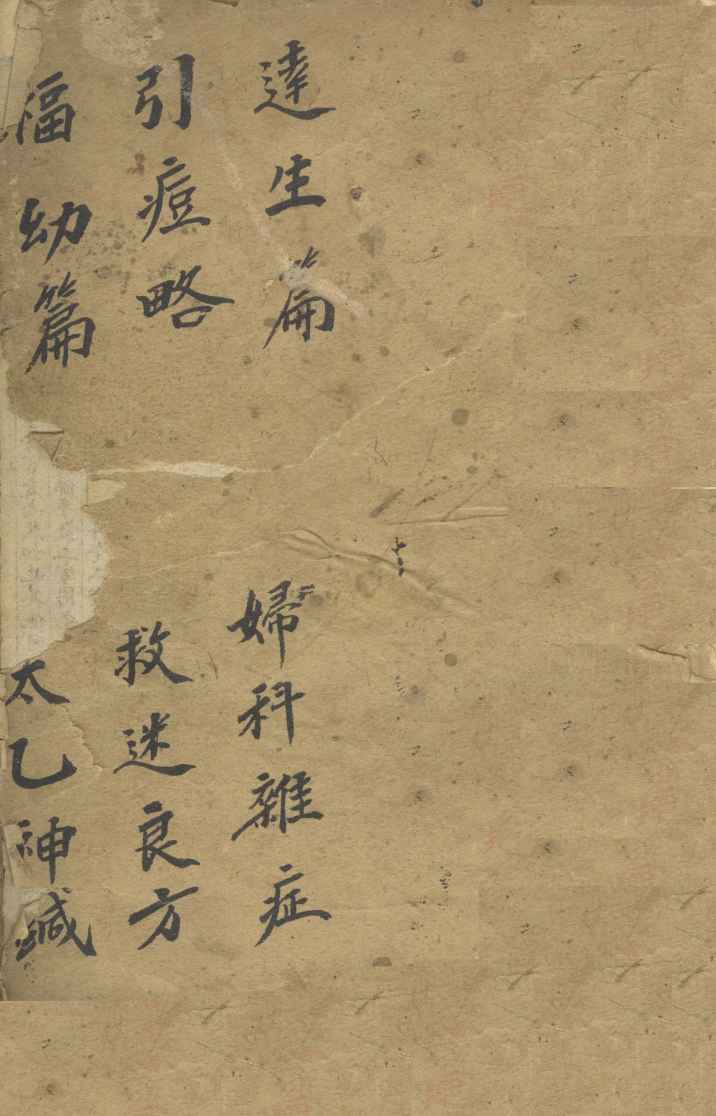 達生篇
引痘略
福幼篇
婦科雜症
救迷良方
太乙神鍼